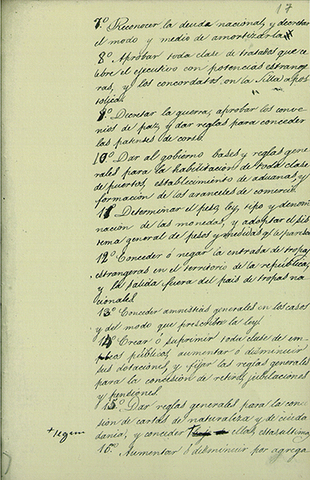 17
7º Reconocer la deuda nacional, y decretar
el modo y medio de amortizarla
8º Aprobar toda clase de tratados que ce
lebre el ejecutivo con potencias estrange
ras, y los concordatos con la Silla apos
tolica.
9º Decretar la guerra, aprobar los conve
nios de paz, y dar reglas para conceder
las patentes de corso.
10º Dar al gobierno bases y reglas gene
rales para la habilitacion de toda clase
de puertos, establecimiento de aduanas, y
formacion de los aranceles de comercio.
11 Determinar el peso, ley, tipo y denomi
nacion de las monedas, y adoptar el sis
tema general de pesos y medidas q. le paresca
12º Conceder ó negar la entrada de tropas
estrangeras en el territorio de la republica,
y la salida fuera del pais de tropas na
cionales.
13º Conceder amnistias generales en los casos
y del modo que prescriba la ley.
14º Crear ó suprimir toda clase de em
pleos públicos, aumentar ó disminuir
sus dotaciones, y fijar las reglas generales
para la concesion de retiros, jubilaciones
y pensiones.
15º Dar reglas generales para la conce
sion de cartas de naturaleza y de ciuda
danía, y conceder ellas, estas ultimas
16º Aumentar ó disminuir por agrega